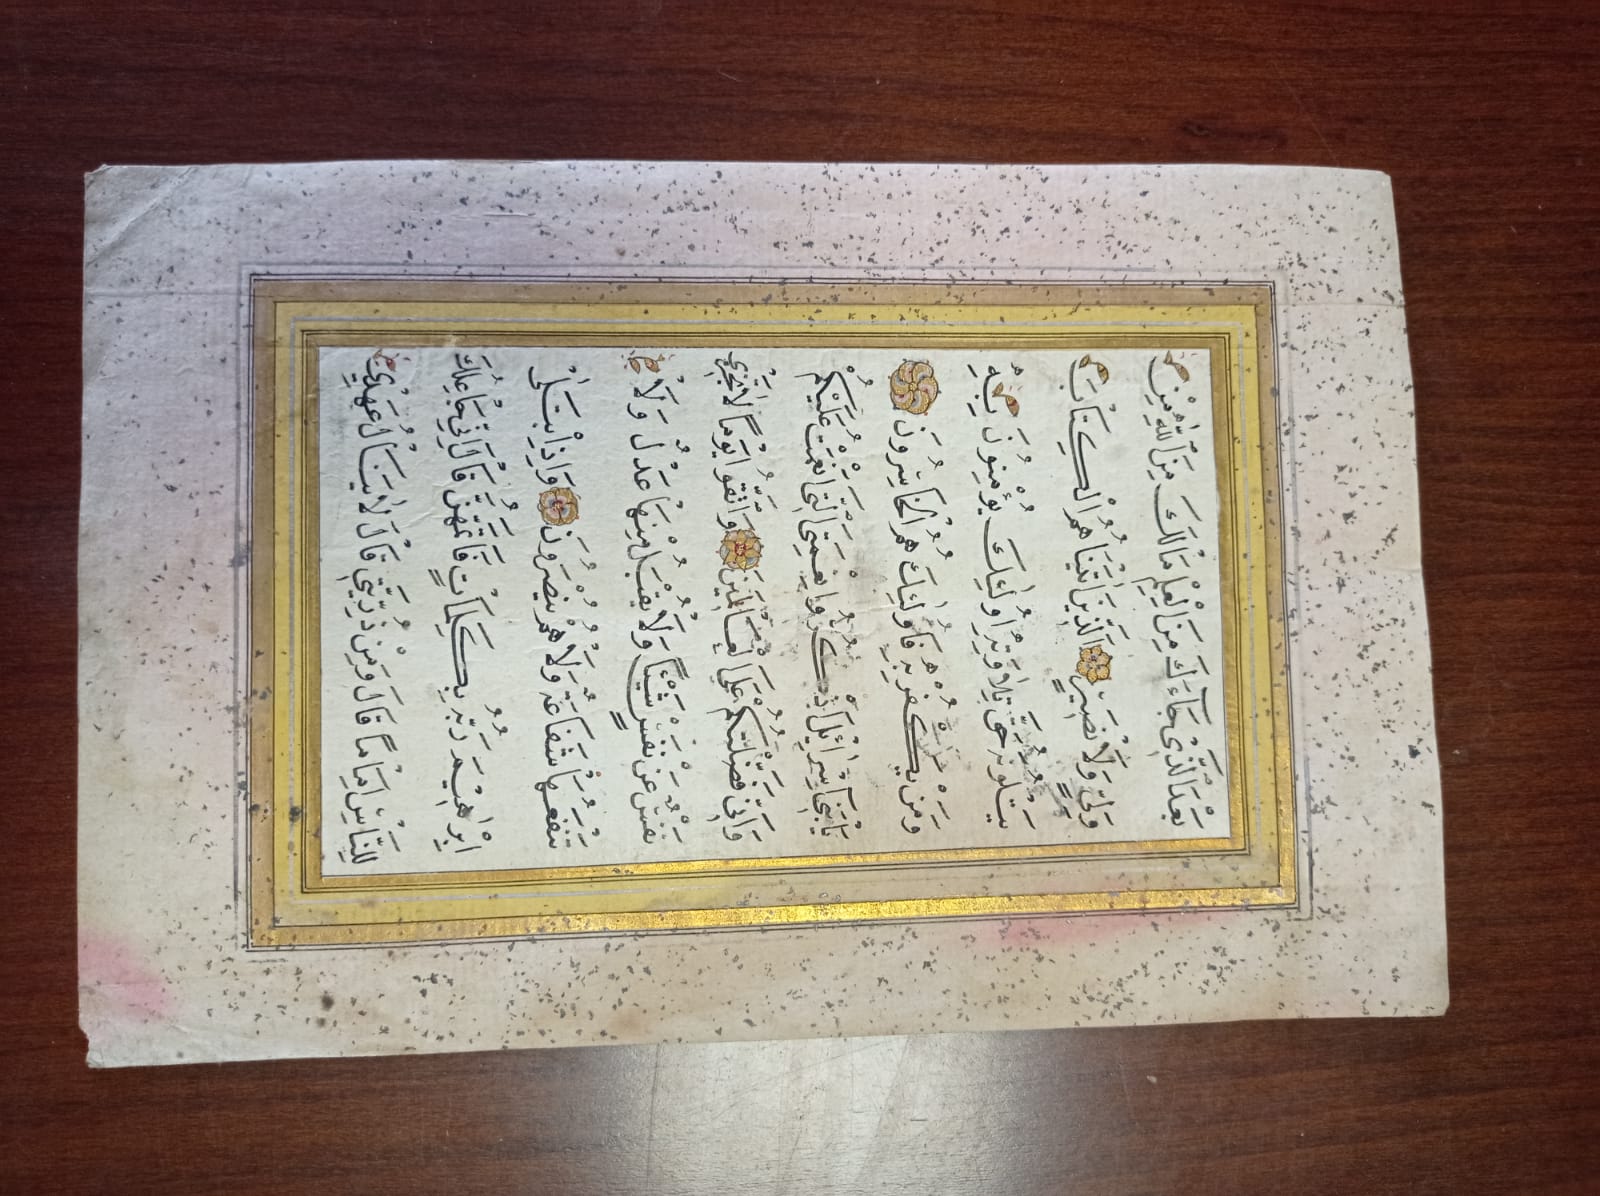 بَعْدَ الَّذِي جَاءَكَ مِنَ الْعِلْمِ مَا لَكَ مِنَ اللّٰهِ مِنْ
وَلِيٍّ وَلَا نَصِيرٍ الَّذِينَ اٰتَيْنَاهُمُ الْكِتَابَ
يَتْلُونَهُ حَقَّ تِلَاوَتِهِ اُولٰئِكَ يُؤْمِنُونَ بِهِ
وَمَنْ يَكْفُرْ بِهِ فَاُولٰئِكَ هُمُ الْخَاسِرُونَ
يَا بَنِي اِسْرَائِلَ اذْكُرُوا نِعْمَتِيَ الَّتِي اَنْعَمْتُ عَلَيْكُمْ
وَاَنِّي فَضَّلْتُكُمْ عَلَى الْعَالَمِينَ وَاتَّقُوا يَوْمًا لَا تَجْزِي
نَفْسٌ عَنْ نَفْسٍ شَيْئًا وَلَا يُقْبَلُ مِنْهَا عَدْلٌ وَلَا
تَنْفَعُهَا شَفَاعَةٌ وَلَا هُمْ يُنْصَرُونَ وَاِذِ ابْتَلٰى
اِبْرٰهِيمَ رَبُّهُ بِكَلِمَاتٍ فَاَتَمَّهُنَّ قَالَ اِنِّي جَاعِلُكَ
لِلنَّاسِ اِمَامًا قَالَ وَمِنْ ذُرِّيَّتِي قَالَ لَا يَنَالُ عَهْدِي